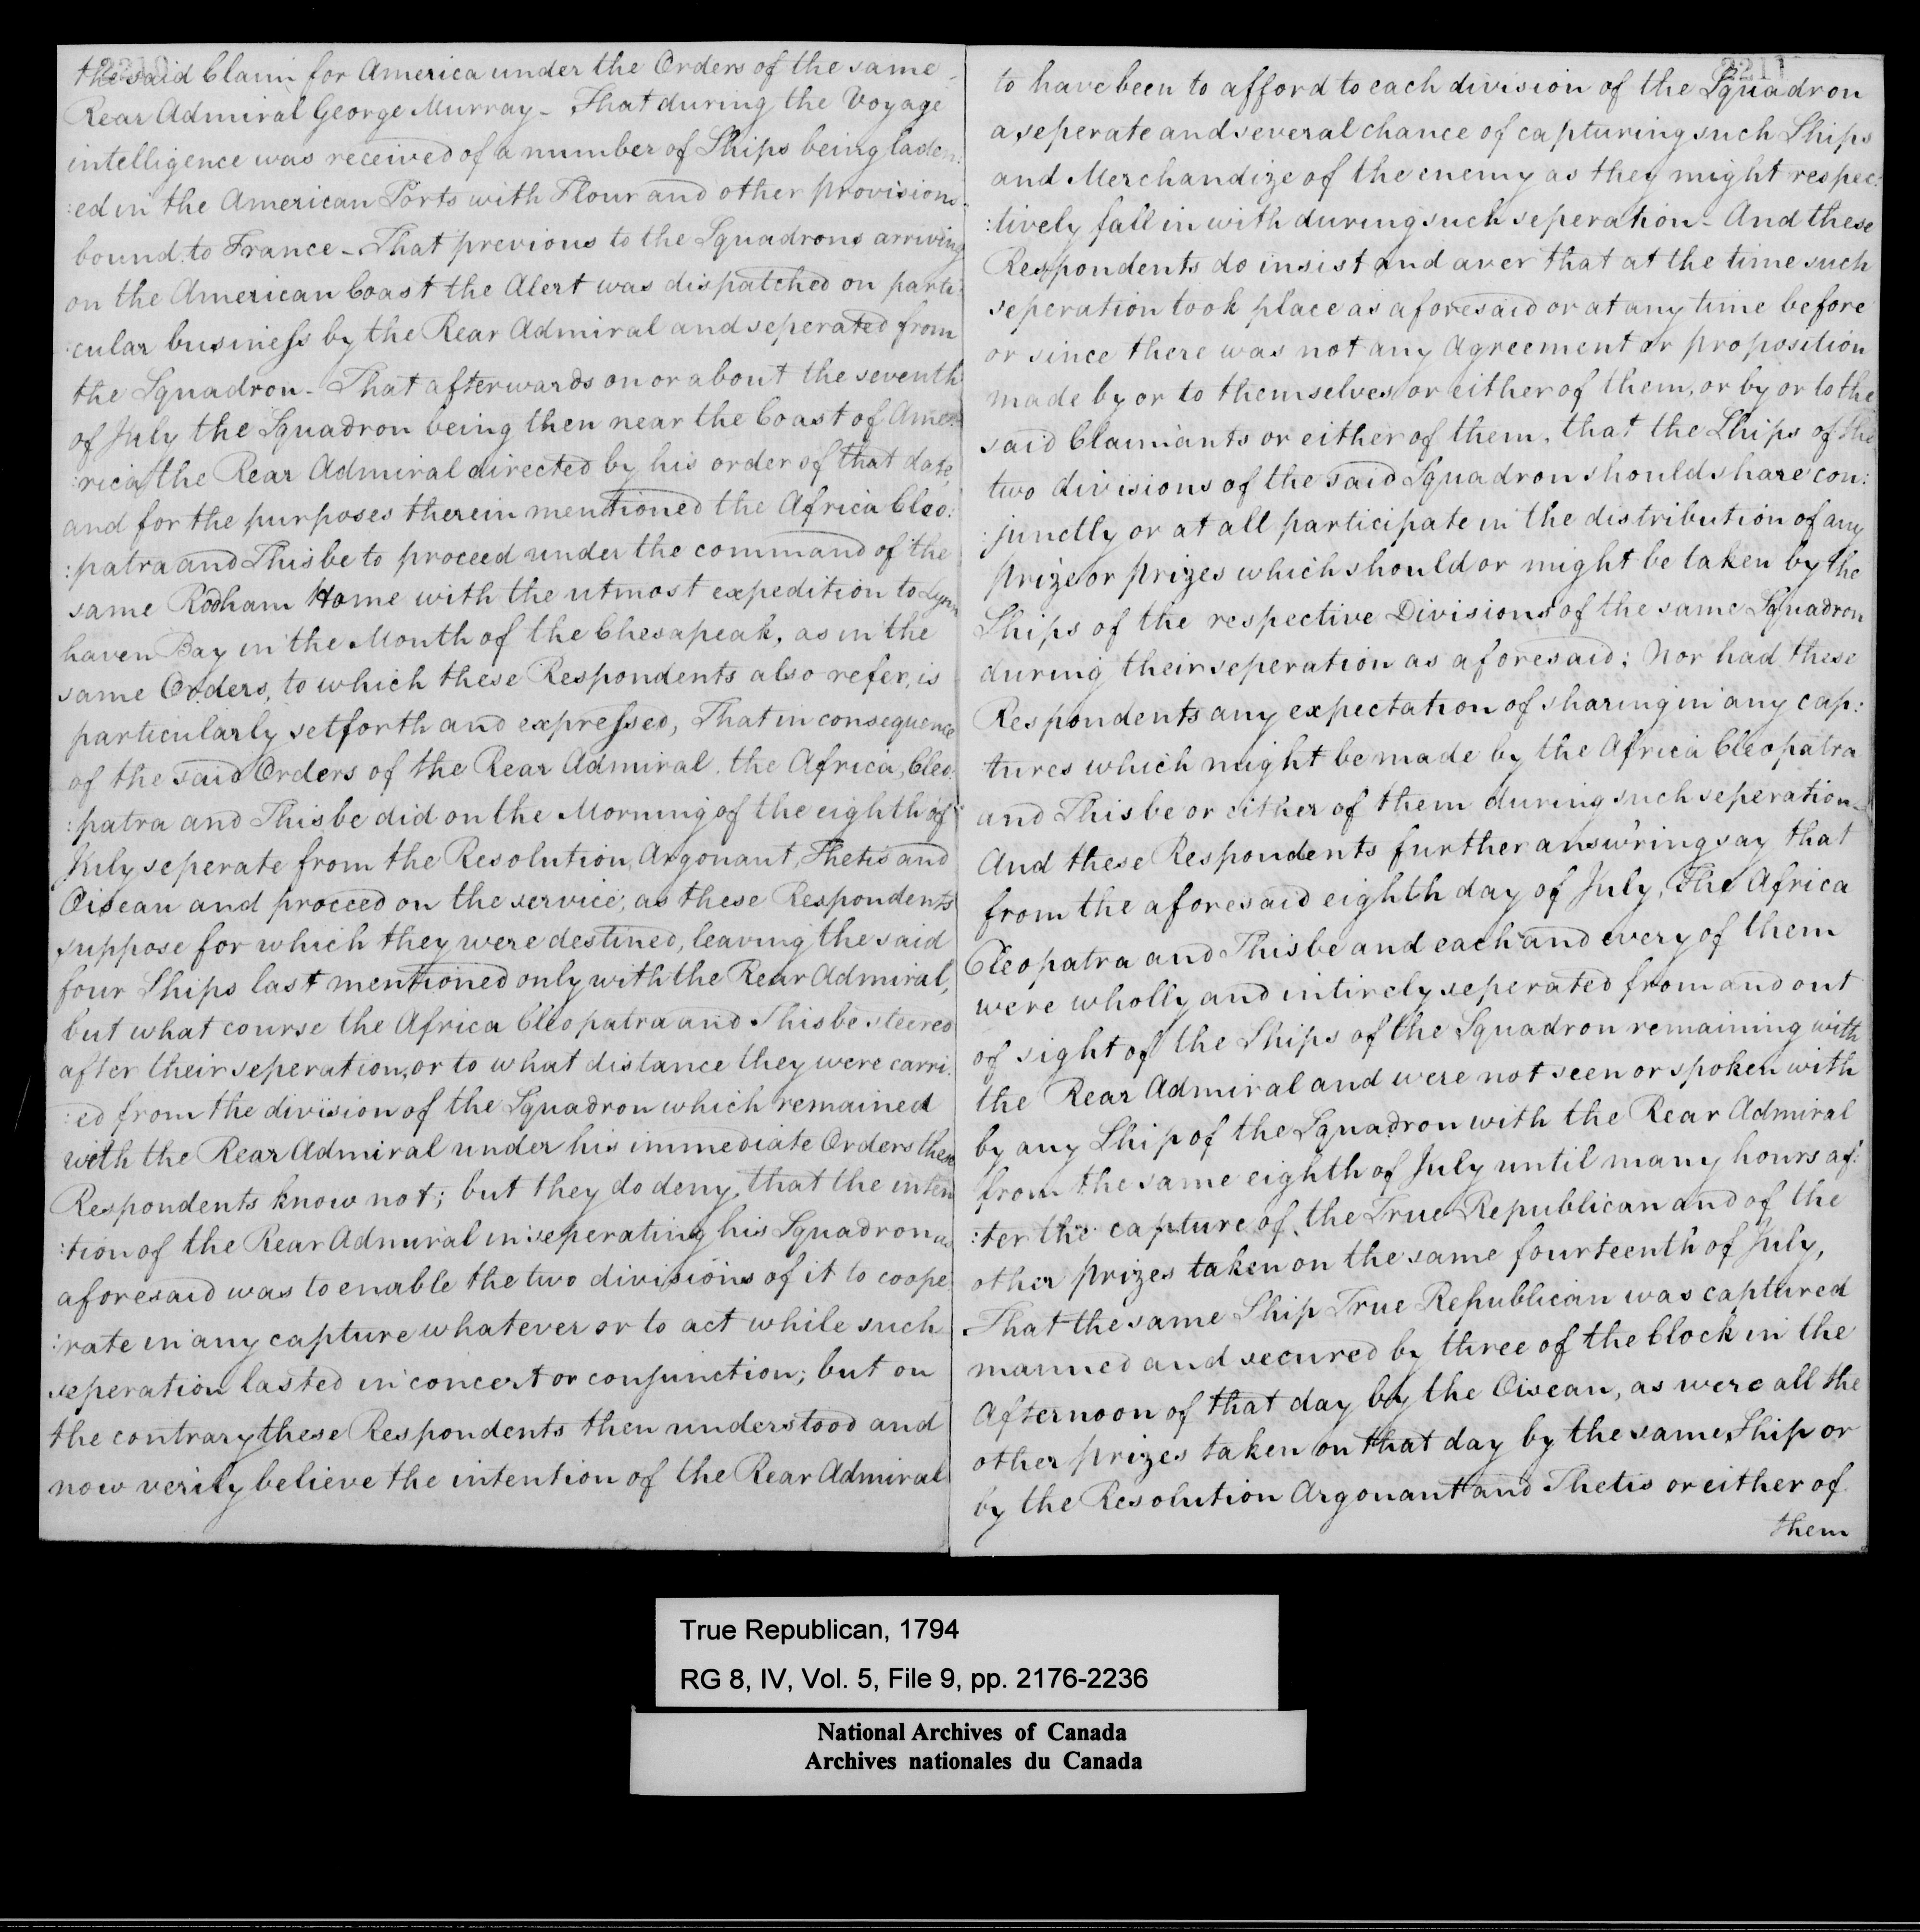 2210
the said Claim for America under the Orders of the same
Rear Admiral George Murray - That during the Voyage
intelligence was received of a number of Ships being laden:
:ed in the American Ports with Flour and other provisions
bound to France - That previous to the Squadrons arriving
on the American Coast the Alert was dispatched on parti:
:cular business by the Rear Admiral and seperated from
the Squadron - That afterwards on or about the seventh
of July the Squadron being then near the Coast of Ame:
:rica, the Rear Admiral directed by his order of that date,
and for the purposes therein mentioned the Africa Cleo:
:patra and Thisbe to proceed under the command of the
same Rodham Home with the utmost expedition to Lynn
haven Bay in the Month of the Chesapeak, as in the
same Orders, to which these Respondents also refer, is
particularly setforth and expressed, That in consequence
of the said Orders of the Rear Admiral, the Africa, Cleo:
:patra and Thisbe did on the Morning of the eighth of
July seperate from the Resolution, Argonant, Thetis and
Oisean and proceed on the service, as these Respondents
suppose for which they were destined, leaving the said
four Ships last mentioned only with the Rear Admiral,
but what course the Africa Cleopatra and Thisbe steered
after their seperation, or to what distance they were carri:
:ed from the division of the Squadron which remained
with the Rear Admiral under his immediate Orders these
Respondents know not; but they do deny, that the inten
:tion of the Rear Admiral in seperating his Squadron as
aforesaid was to enable the two divisions of it to coope
:rate in any capture whatever or to act while such
seperation lasted in concert or conjunction; but on
the contrary these Respondents then understood and
now verily believe the intention of the Rear Admiral
2211
to have been to afford to each division of the Squadron
a seperate and several chance of capturing such Ships
and Merchandize of the enemy as they might respec:
:tively fall in with during such seperation - And these
Respondents do insist and aver that at the time such
seperation took place as aforesaid or at any time before
or since there was not any Agreement or proposition
made by or to themselves or either of them, or by or to the
said Claimants or either of them, that the Ships of the
two divisions of the said Squadron should share con:
:junctly or at all participate in the distribution of any
prize or prizes which should or might be taken by the
Ships of the respective Divisions of the same Squadron
during their seperation as aforesaid; Nor had these
Respondents any expectation of sharing in any cap:
tures which might be made by the Africa Cleopatra
and Thisbe or either of them during such seperation -
And these Respondents further answ'ring say that
from the aforesaid eighth day of July, The Africa
Cleopatra and Thisbe and each and every of them
were wholly and intirely seperated from and out
of sight of the Ships of the Squadron remaining with
the Rear Admiral and were not seen or spoken with
by any Ship of the Squadron with the Rear Admiral
from the same eighth of July until many hours af:
:ter the capture of the True Republican and of the
other prizes taken on the same fourteenth of July,
That the same Ship True Republican was captured
manned and secured by three of the Clock in the
Afternoon of that day by the Oisean, as were all the
other prizes taken on that day by the same Ship or
by the Resolution Argonant and Thetis or either of
them
True Republican, 1794
RG 8, IV, Vol. 5, File 9, pp. 2176-2236
National Archives of Canada
Archives nationales du Canada